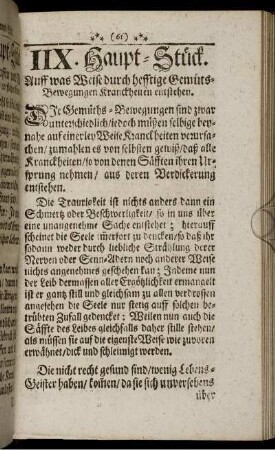 (61)
IIX. Haupt-Stück.
Auff was Weise durch hefftige Gemüts-
Bewegungen Kranckheiten entstehen.
Die Gemüths-Bewegungen sind zwar
unterschiedlich/jedoch müßen selbige bey-
nahe auf einerley Weise Kranckheiten verursa-
chen/ zumahlen es von selbsten gewiß/ daß alle
Kranckheiten/ so von denen Säfften ihren Ur-
sprung nehmen/ aus deren Verdickerung
entstehen.
Die Traurigkeit ist nichts anders dann ein
Schmertz oder Beschwerligkeit/ so in uns über
eine unangenehme Sache entstehet; hierauff
scheinet die Seele mehr zu dencken/ so daß ihr
sodann weder durch liebliche Strählung derer
Nerven oder Senn-Adern noch anderer Weise
nichts angenehmes geschehen kan; Indeme nun
der Leib dermassen aller Ergößlichkeit ermangelt
ist er gantz still und gleichsam zu allen verdrossen
angesehen die Seele nur stetig auff solchen be-
trübten Zufall gedencket; Weilen nun auch die
Säffte des Leibes gleichfalls daher stille stehen/
als müssen sie auf die eigenste Weise wie zuvoren
erwähnet/ dick und schleimigt werden.
Die nicht recht gesund sind/ wenig Lebens-
Geister haben/ kom̃en/ da sie sich unversehens
über